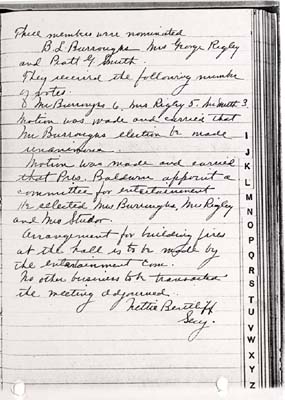 Three members were nominated
B. L. Burroughs Mrs George Rigley
and Pratt G. Smith.
They received the following number
of votes.
Mr Burroughs 6, Mrs Rigley 5. Mr Smith 3.
Motion was made and carried that
Mr Burroughs election be made
unanimous.
Motion was made and carried
that Pres. Baldwin appoint a
committee for entertainment
He selected Mrs Burroughs, Mrs Rigley
and Mrs Studor.
Arrangement for building fires
at the hall is to be made by
the entertainment Com.
No other business to be transacted
the meeting adjourned.
Nettie
Secy.
I
J
K
L
M
N
O
P
Q
R
S
T
U
V
W
X
Y
Z